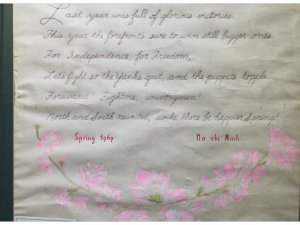 Last year was full of glorious victories.
This year the forefront's sure to win still bigger ones.
For Independence, for Freedom,
Let's fight so the Yanks quit, and the puppets topple.
Forward! Fighters, countrymen!
North and South reunited, could there be happier Spring!
Spring 1969 Ho chi Minh